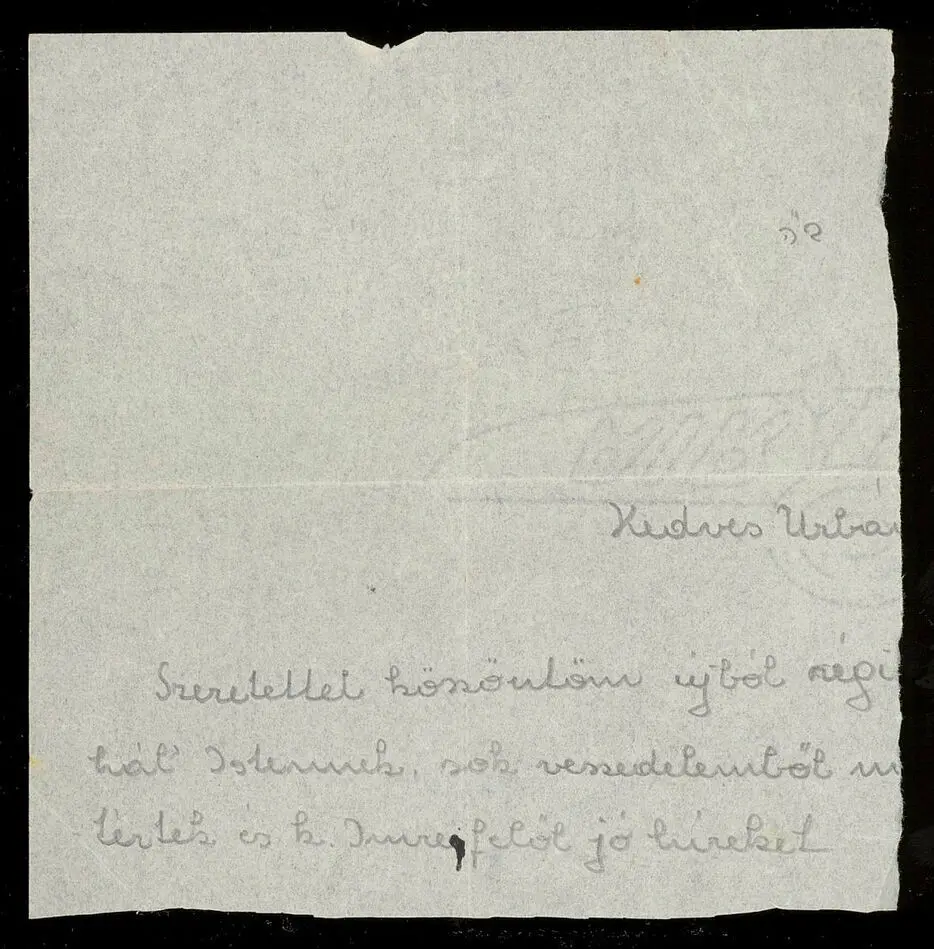 ב"ה
Kedves Urbá
Szeretettel köszöntöm újból régi
hál' Istennek, sok veszedelemből
tértek és k. Imre felől jó híreket